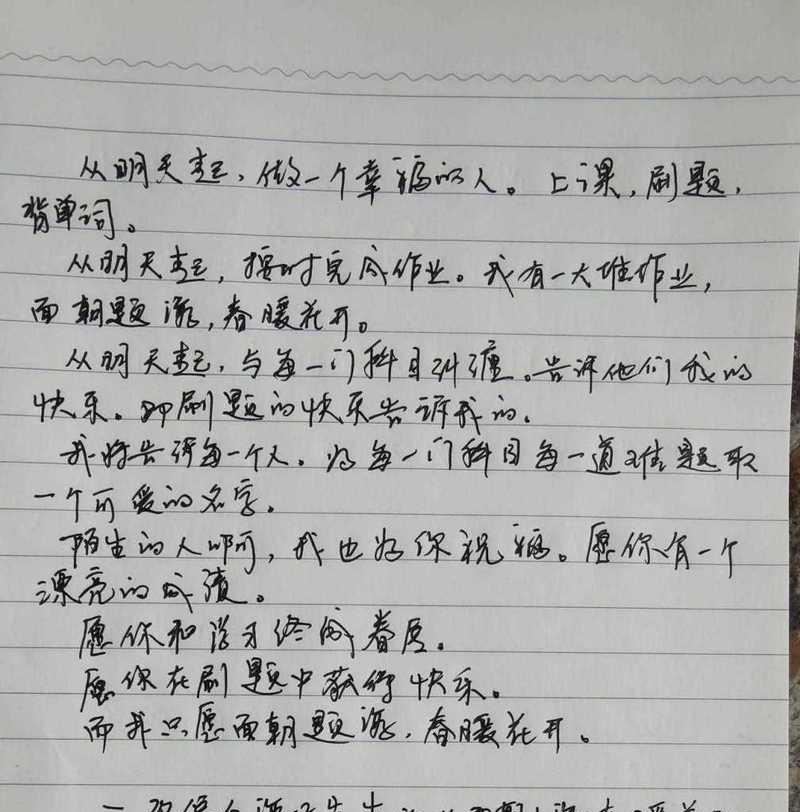 从明天起，做一个幸福的人。上课，刷题，
背单词。
从明天起，按时完成作业。我有一大堆作业，
面朝题海，春暖花开。
从明天起，与每一门科目纠缠。告诉他们我的
快乐。那刷题的快乐告诉我的。
我将告诉每一个人。为每一门科目每一道难题取
一个可爱的名字。
陌生的人啊，我也为你祝福。愿你有一个
漂亮的成绩。
愿你和学习终成眷属。
愿你在刷题中获得快乐。
而我只愿面朝题海，春暖花开。